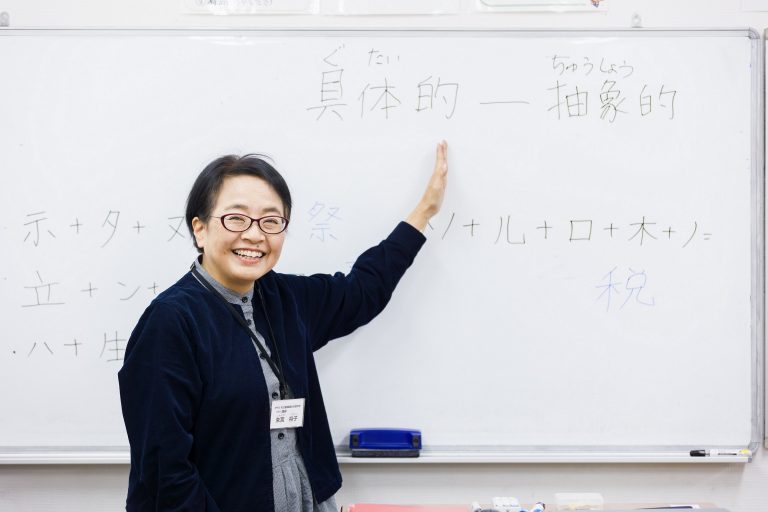 ぐ たい ちゅうしょう
具体的 — 抽象的
示+タ+ヌ 祭 ソ+儿+口+木+ノ=
立+ン+ 税
・ハ+生